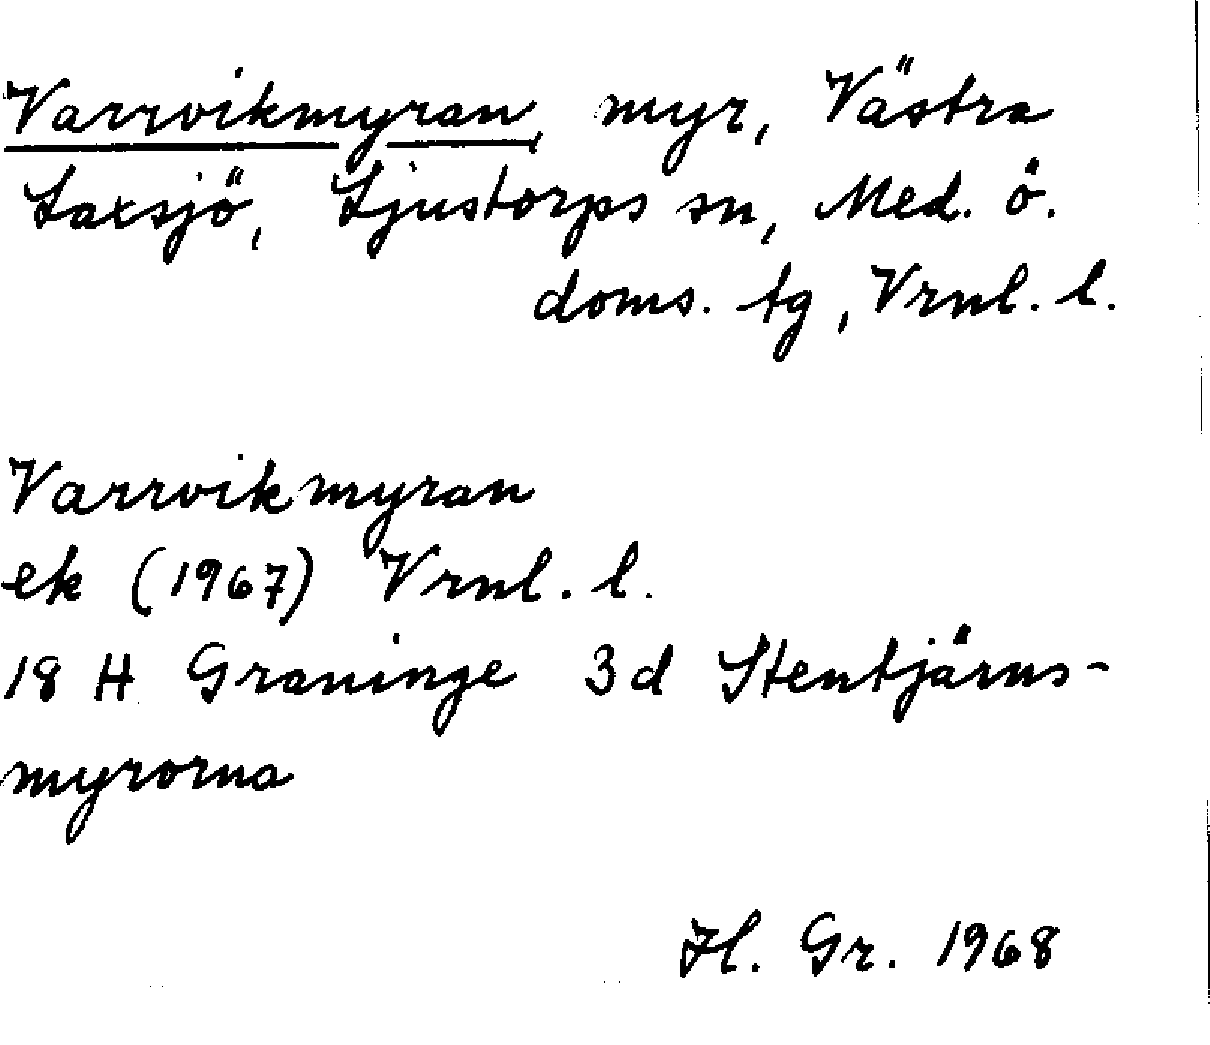 Varrvikmyran, myr, Västra
Laxsjö, Ljustorps sn, Med. ö.
doms. tg, Vrnl. l.
Varrvikmyran
ek (1967) Vrnl. l.
18 H Graninge 3d Stentjärns-
myrorna
Hl. Gr. 1968